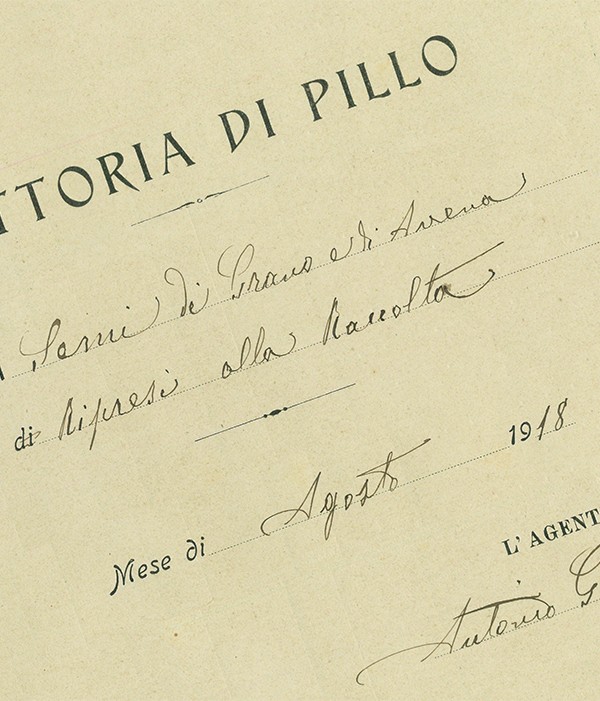 TTORIA DI PILLO
Semi di Grano e di Avena
di Ripresi alla Raccolta
Mese di Agosto 1918
L'AGENT
Antonio G